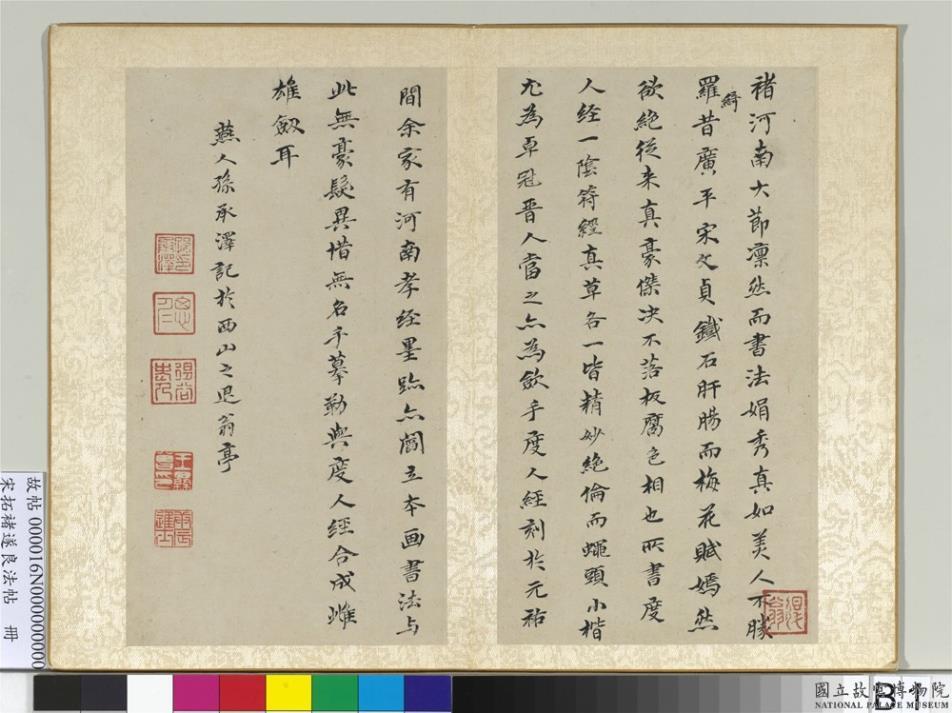 褚河南大節凛然而書法娟秀真如美人不勝
羅綺昔廣平宋文貞鐵石肝腸而梅花賦嫣然
欲絕從来真豪傑决不落板腐色相也所書度
人经一陰符經真草各一皆精妙絶倫而蠅頭小楷
尤為卓冠晋人當之亦為斂手度人經刻於元祐
間余家有河南孝经墨跡亦閻立本画書法与
此無豪髮異惜無名手摹勒與度人經合成雌
雄劔耳
燕人孫承澤記於西山之退翁亭
退翁
故帖 000016N000000000
宋拓褚遂良法帖 冊
國立故宮博物院
NATIONAL PALACE MUSEUM
B 1